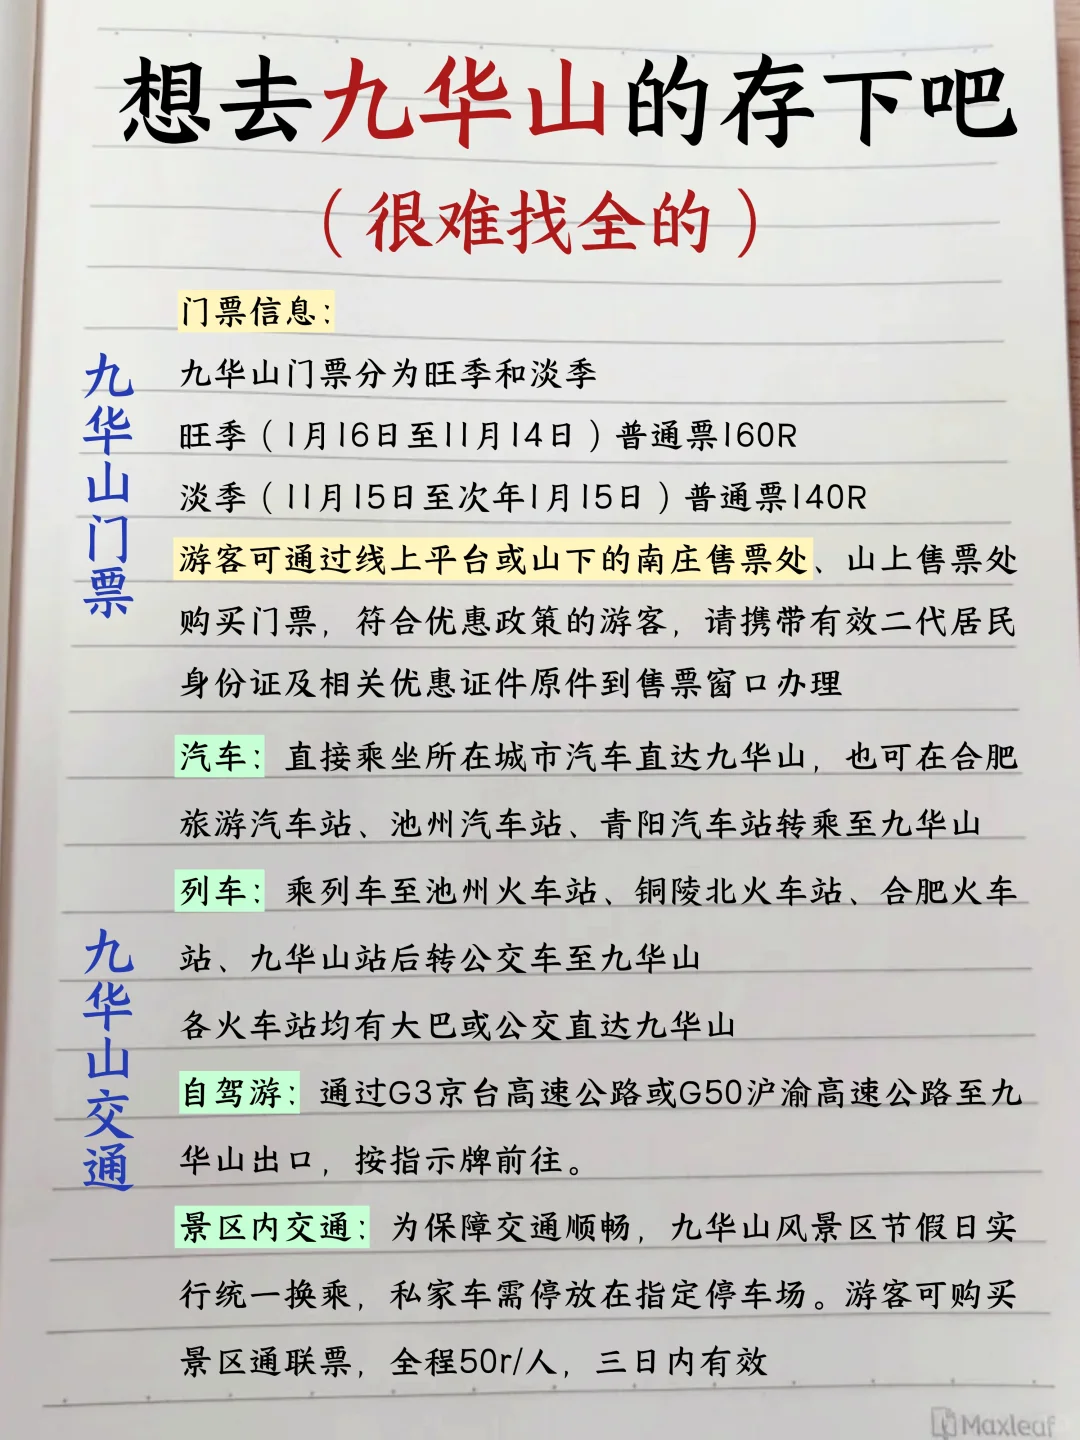 想去九华山的存下吧
（很难找全的）
九华山门票
门票信息：
九华山门票分为旺季和淡季
旺季（1月16日至11月14日）普通票160R
淡季（11月15日至次年1月15日）普通票140R
游客可通过线上平台或山下的南庄售票处、山上售票处
购买门票，符合优惠政策的游客，请携带有效二代居民
身份证及相关优惠证件原件到售票窗口办理
九华山交通
汽车：直接乘坐所在城市汽车直达九华山，也可在合肥
旅游汽车站、池州汽车站、青阳汽车站转乘至九华山
列车：乘列车至池州火车站、铜陵北火车站、合肥火车
站、九华山站后转公交车至九华山
各火车站均有大巴或公交直达九华山
自驾游：通过G3京台高速公路或G50沪渝高速公路至九
华山出口，按指示牌前往。
景区内交通：为保障交通顺畅，九华山风景区节假日实
行统一换乘，私家车需停放在指定停车场。游客可购买
景区通联票，全程50r/人，三日内有效
Maxleaf